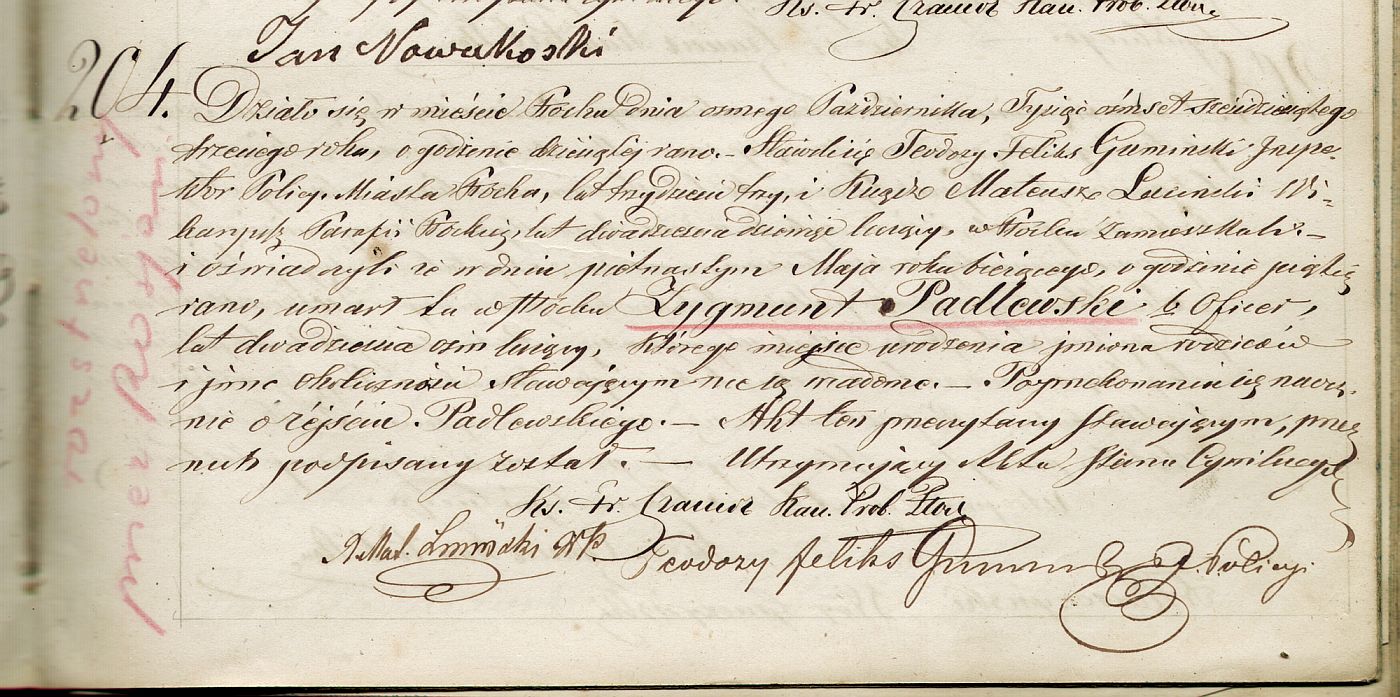 Ks. Fr. Kan. Prob. Płoc.
Jan Nowakoski
204.
Działo się w mieście Płocku dnia osmego Października, Tysiąc ośmset sześdziesiątego
trzeciego roku, o godzinie dziewiątej rano. – Stawili się Teodozy Feliks Gumiński Inspe-
ktor Policyi Miasta Płocka, lat trzydzieści trzy, i Xiądz Mateusz Luciński Wi-
karyusz Parafii Płockiej, lat dwadzieścia dziewięć liczący, w Płocku zamieszkali. –
i oświadczyli że w dniu piętnastym Maja roku bieżącego, o godzinie piątej
rano, umarł tu w Płocku Zygmunt Padlewski b. Oficer,
lat dwadzieścia ośm liczący, którego miejsce urodzenia imiona rodziców
i inne okoliczności Stawającym nie są wiadome. – Po przekonaniu się naocz-
nie o zejściu Padlewskiego. – Akt ten przeczytany Stawającym, przez
nich podpisany został. – Utrzymujący Akta Stanu Cywilnego
Ks. Fr. Kan. Prob. Płoc.
X. Mat. Luciński W.P.
Teodozy Feliks Gumiński I. Policyi
rozstrzelony
przez Rosjan